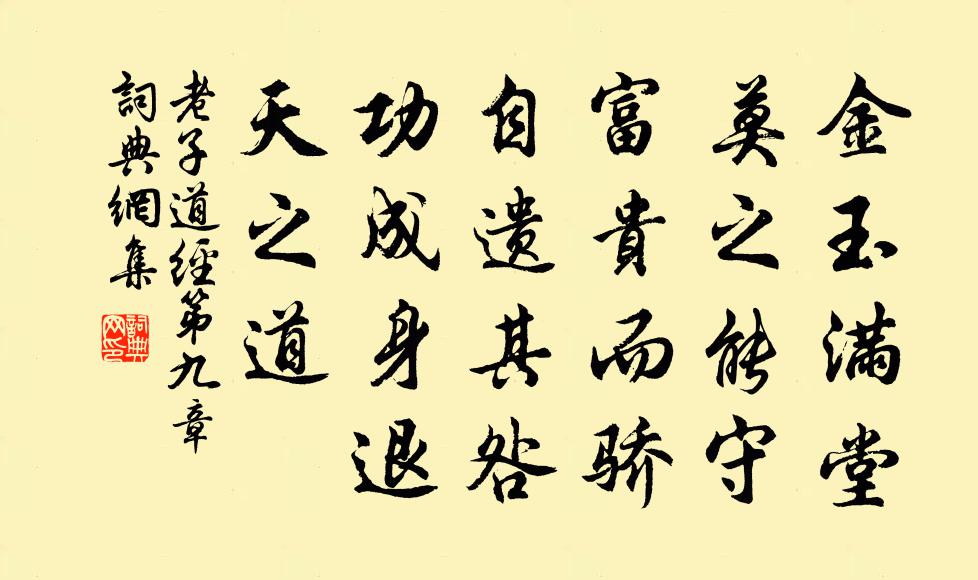 金玉满堂
莫之能守
富貴而骄
自遗其咎
功成身退
天之道
老子道經第九章
詞典網集
詞典网印